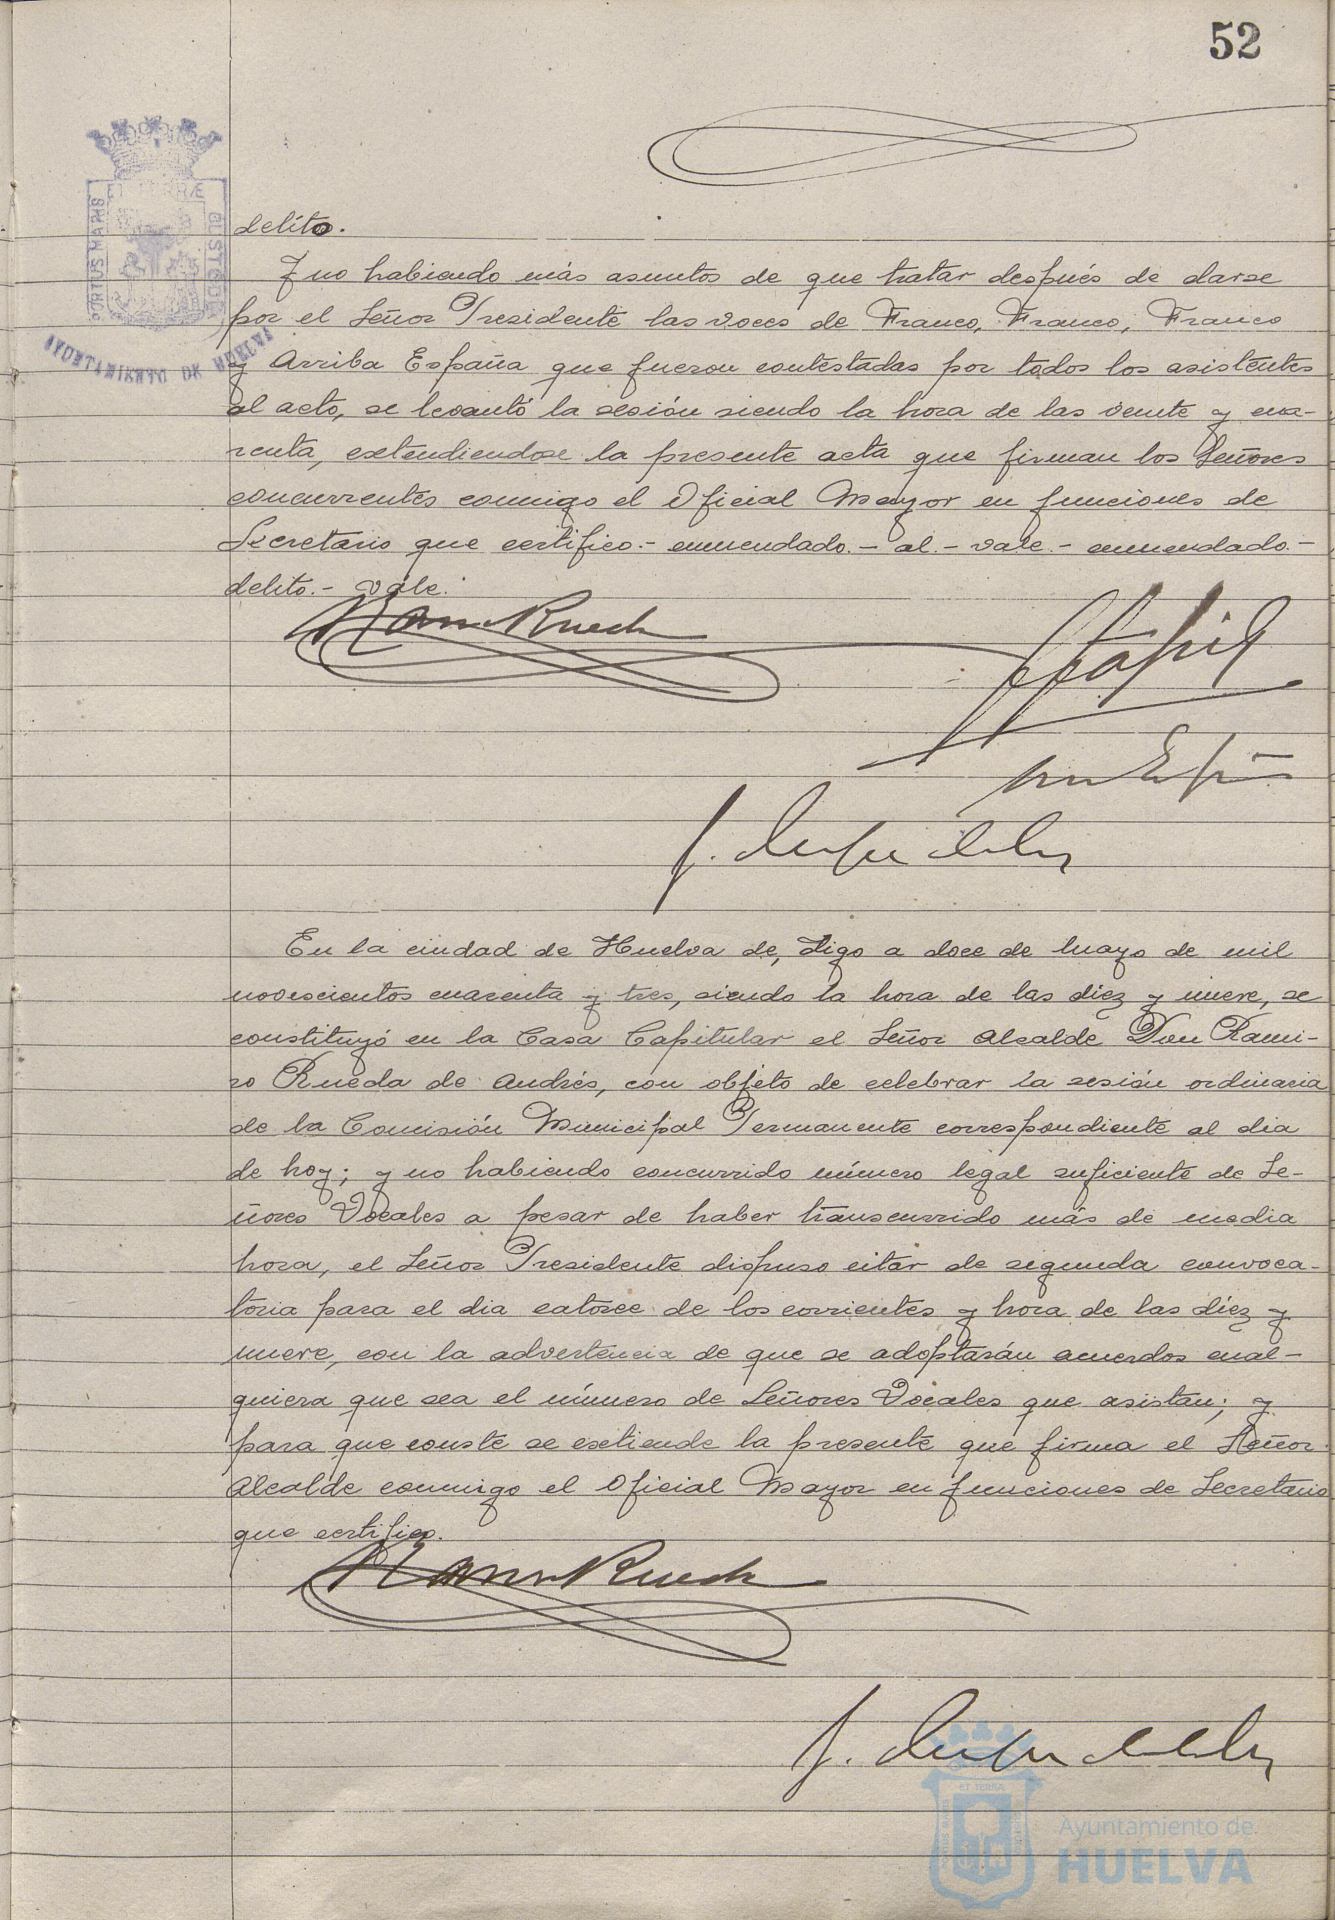 52
PORTUS MARIS ET TERRÆ CUSTODIA
AYUNTAMIENTO DE HUELVA
delito.
Y no habiendo más asuntos de que tratar después de darse
por el Señor Presidente las voces de Franco, Franco, Franco
y Arriba España que fueron contestadas por todos los asistentes
al acto, se levantó la sesión siendo la hora de las veinte y cua-
renta, extendiendose la presente acta que firman los Señores
concurrentes conmigo el Oficial Mayor en funciones de
Secretario que certifico.- enmendado.- al.- vale.- enmendado.-
delito.- vale.
Ram Rueda
En la ciudad de Huelva de, digo a doce de Mayo de mil
novescientos cuarenta y tres, siendo la hora de las diez y nueve, se
constituyó en la Casa Capitular el Señor Alcalde Don Rami-
ro Rueda de Andrés, con objeto de celebrar la sesión ordinaria
de la Comisión Municipal Permanente correspondiente al dia
de hoy; y no habiendo concurrido número legal suficiente de Se-
ñores Vocales a pesar de haber transcurrido más de media
hora, el Señor Presidente dispuso citar de segunda convoca-
toria para el dia catorce de los corrientes y hora de las diez y
nueve, con la advertencia de que se adoptarán acuerdos cual-
quiera que sea el número de Señores Vocales que asistan; y
para que conste se extiende la presente que firma el Señor
Alcalde conmigo el Oficial Mayor en funciones de Secretario
que certifico.
Ram Rueda
ET TERRÆ
Ayuntamiento de
HUELVA